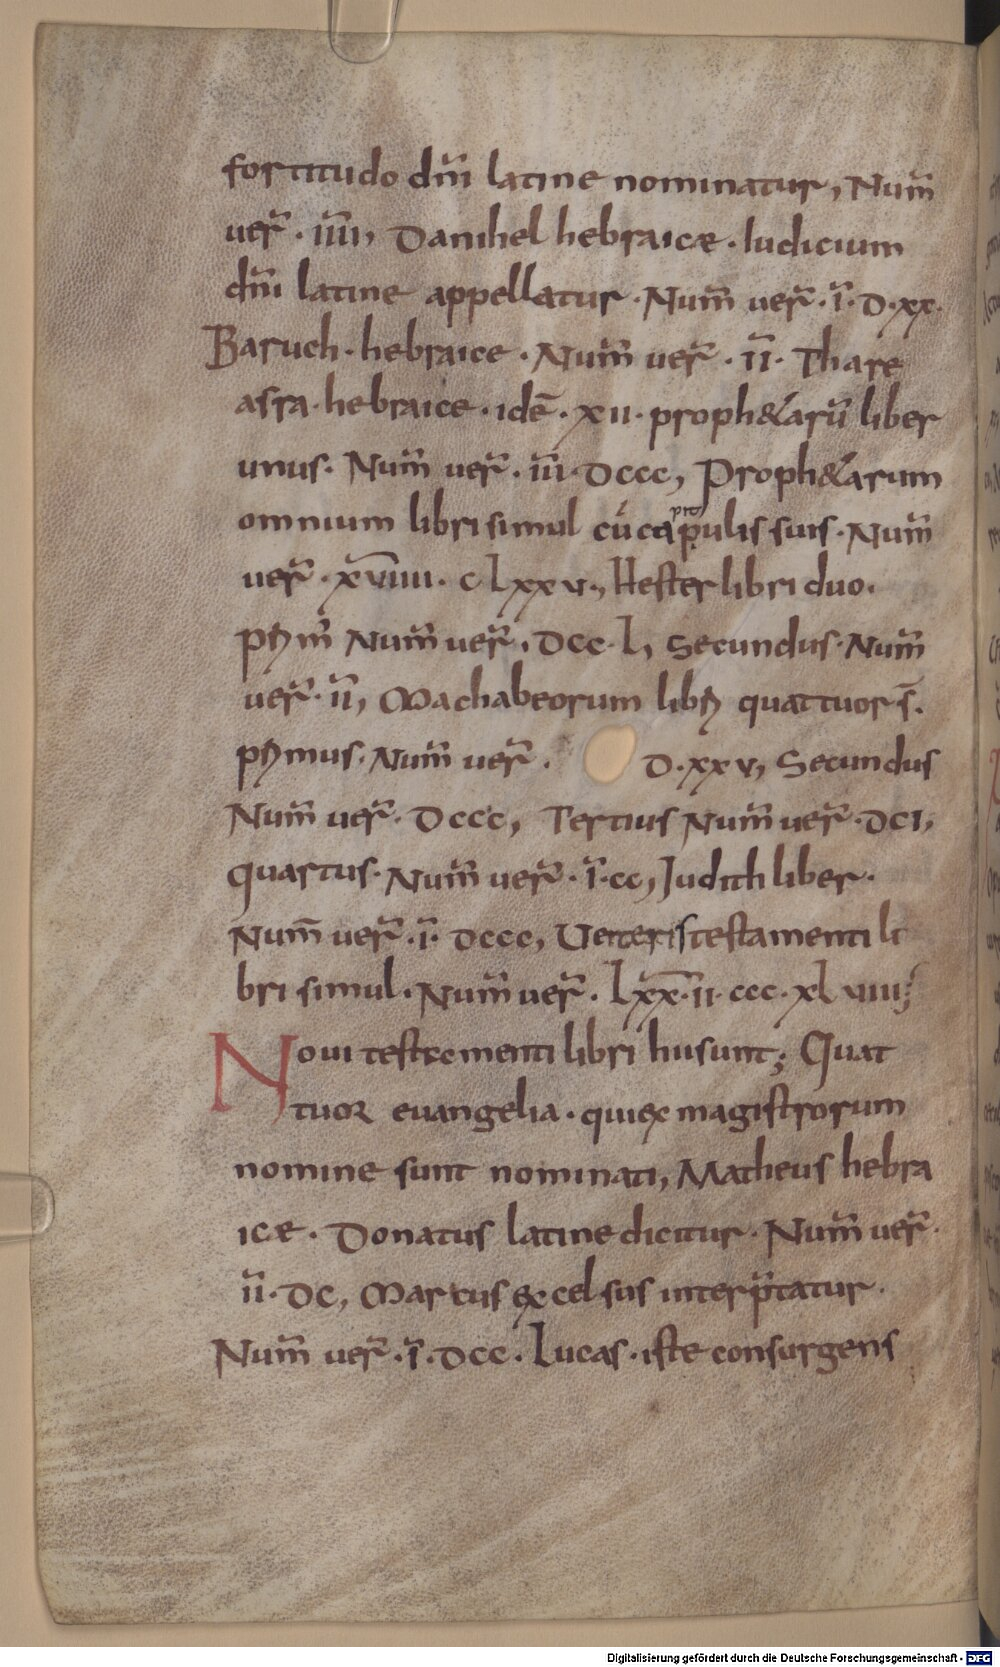 fortitudo dn̄i latine nominatur, Num̄
uer̄ · iīii, Danihel hebraicæ · Iudicium
dn̄i latine appellatur · Num̄ uer̄ · ī · D · xx ·
Baruch · hebraice · Num̄ uer̄ · īi · Thare
asra · hebraice · idē · xii · proph&arū liber
unus · Num̄ uer̄ · iīi · DCCC, Proph&arum
omnium libri simul cū capropulis suis · Num̄
uer̄ · xv̄iiii · CLxxv, Hester libri duo ·
prim̄ Num̄ uer̄ · DCC · L, Secundus · Num̄
uer̄ · īi, Machabeorum libri quattuor s̄ ·
primus · Num̄ uer̄ · D · xxv, Secundus
Num̄ uer̄ · DCCC, Tertius Num̄ uer̄ · DCI,
quartus · Num̄ uer̄ · ī · cc, Judith liber ·
Num̄ uer̄ · ī · DCCC, Ueteris testamenti li
bri simul · Num̄ uer̄ · Lxx̄ · ii · ccc · xLviiii;
Noui testamenti libri hii sunt; Quat
tuor euangelia · qui ex magistrorum
nomine sunt nominati, Matheus hebra
icæ · Donatus latine dicitur · Num̄ uer̄ ·
īi · DC, Marcus excelsus interp̄tatur ·
Num̄ uer̄ · ī · DCC · Lucas · iste consurgens
Digitalisierung gefördert durch die Deutsche Forschungsgemeinschaft - DFG